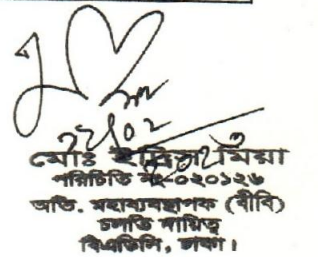 ২২/০২
মোঃ ইদ্রিস মিয়া
পরিচিতি নং-০২০১২৬
অতি. মহাব্যবস্থাপক (বীবি)
চলতি দায়িত্ব
বিএডিসি, ঢাকা।